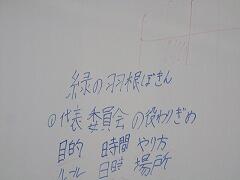 緑の羽根ぼきん
①代表委員会の役わりぎめ
目的 時間 やり方
ルール 日時 場所